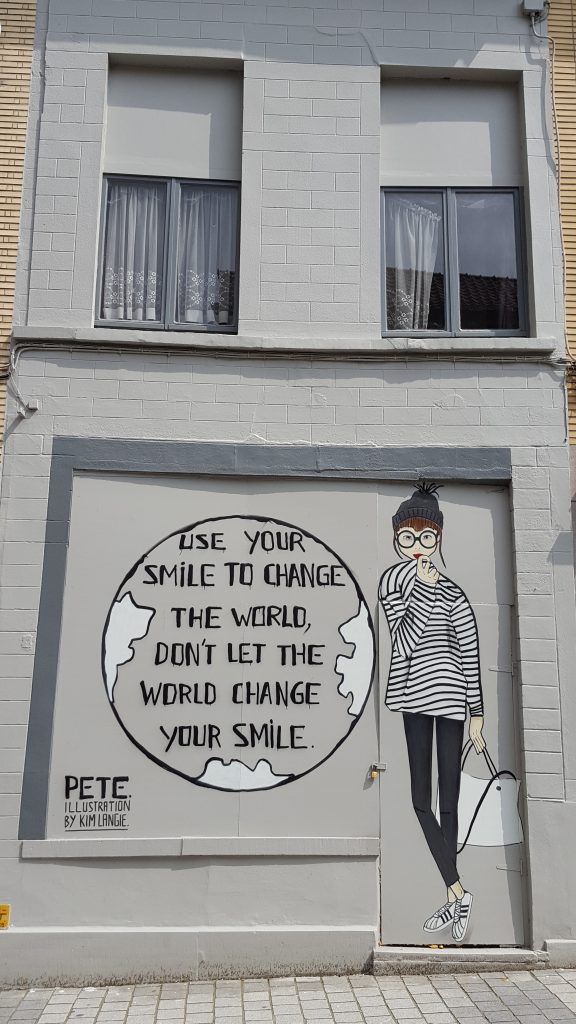 USE YOUR
SMiLE TO CHANGE
THE WORLD,
DON'T LET THE
WORLD CHANGE
YOUR SMiLE.
PETE.
ILLUSTRATION
BY KIM LANGIE.